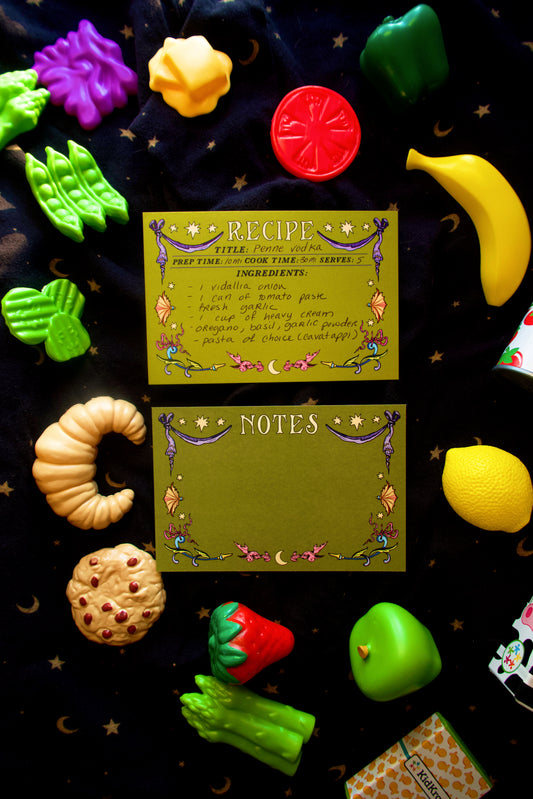 RECIPE
TITLE: Penne vodka
PREP TIME: 10m COOK TIME: 30m SERVES: 5
INGREDIENTS:
- 1 vidallia onion
- 1 can of tomato paste
- fresh garlic
- 1 cup of heavy cream
- oregano, basil, garlic powder
- pasta of choice (cavatappi)
NOTES